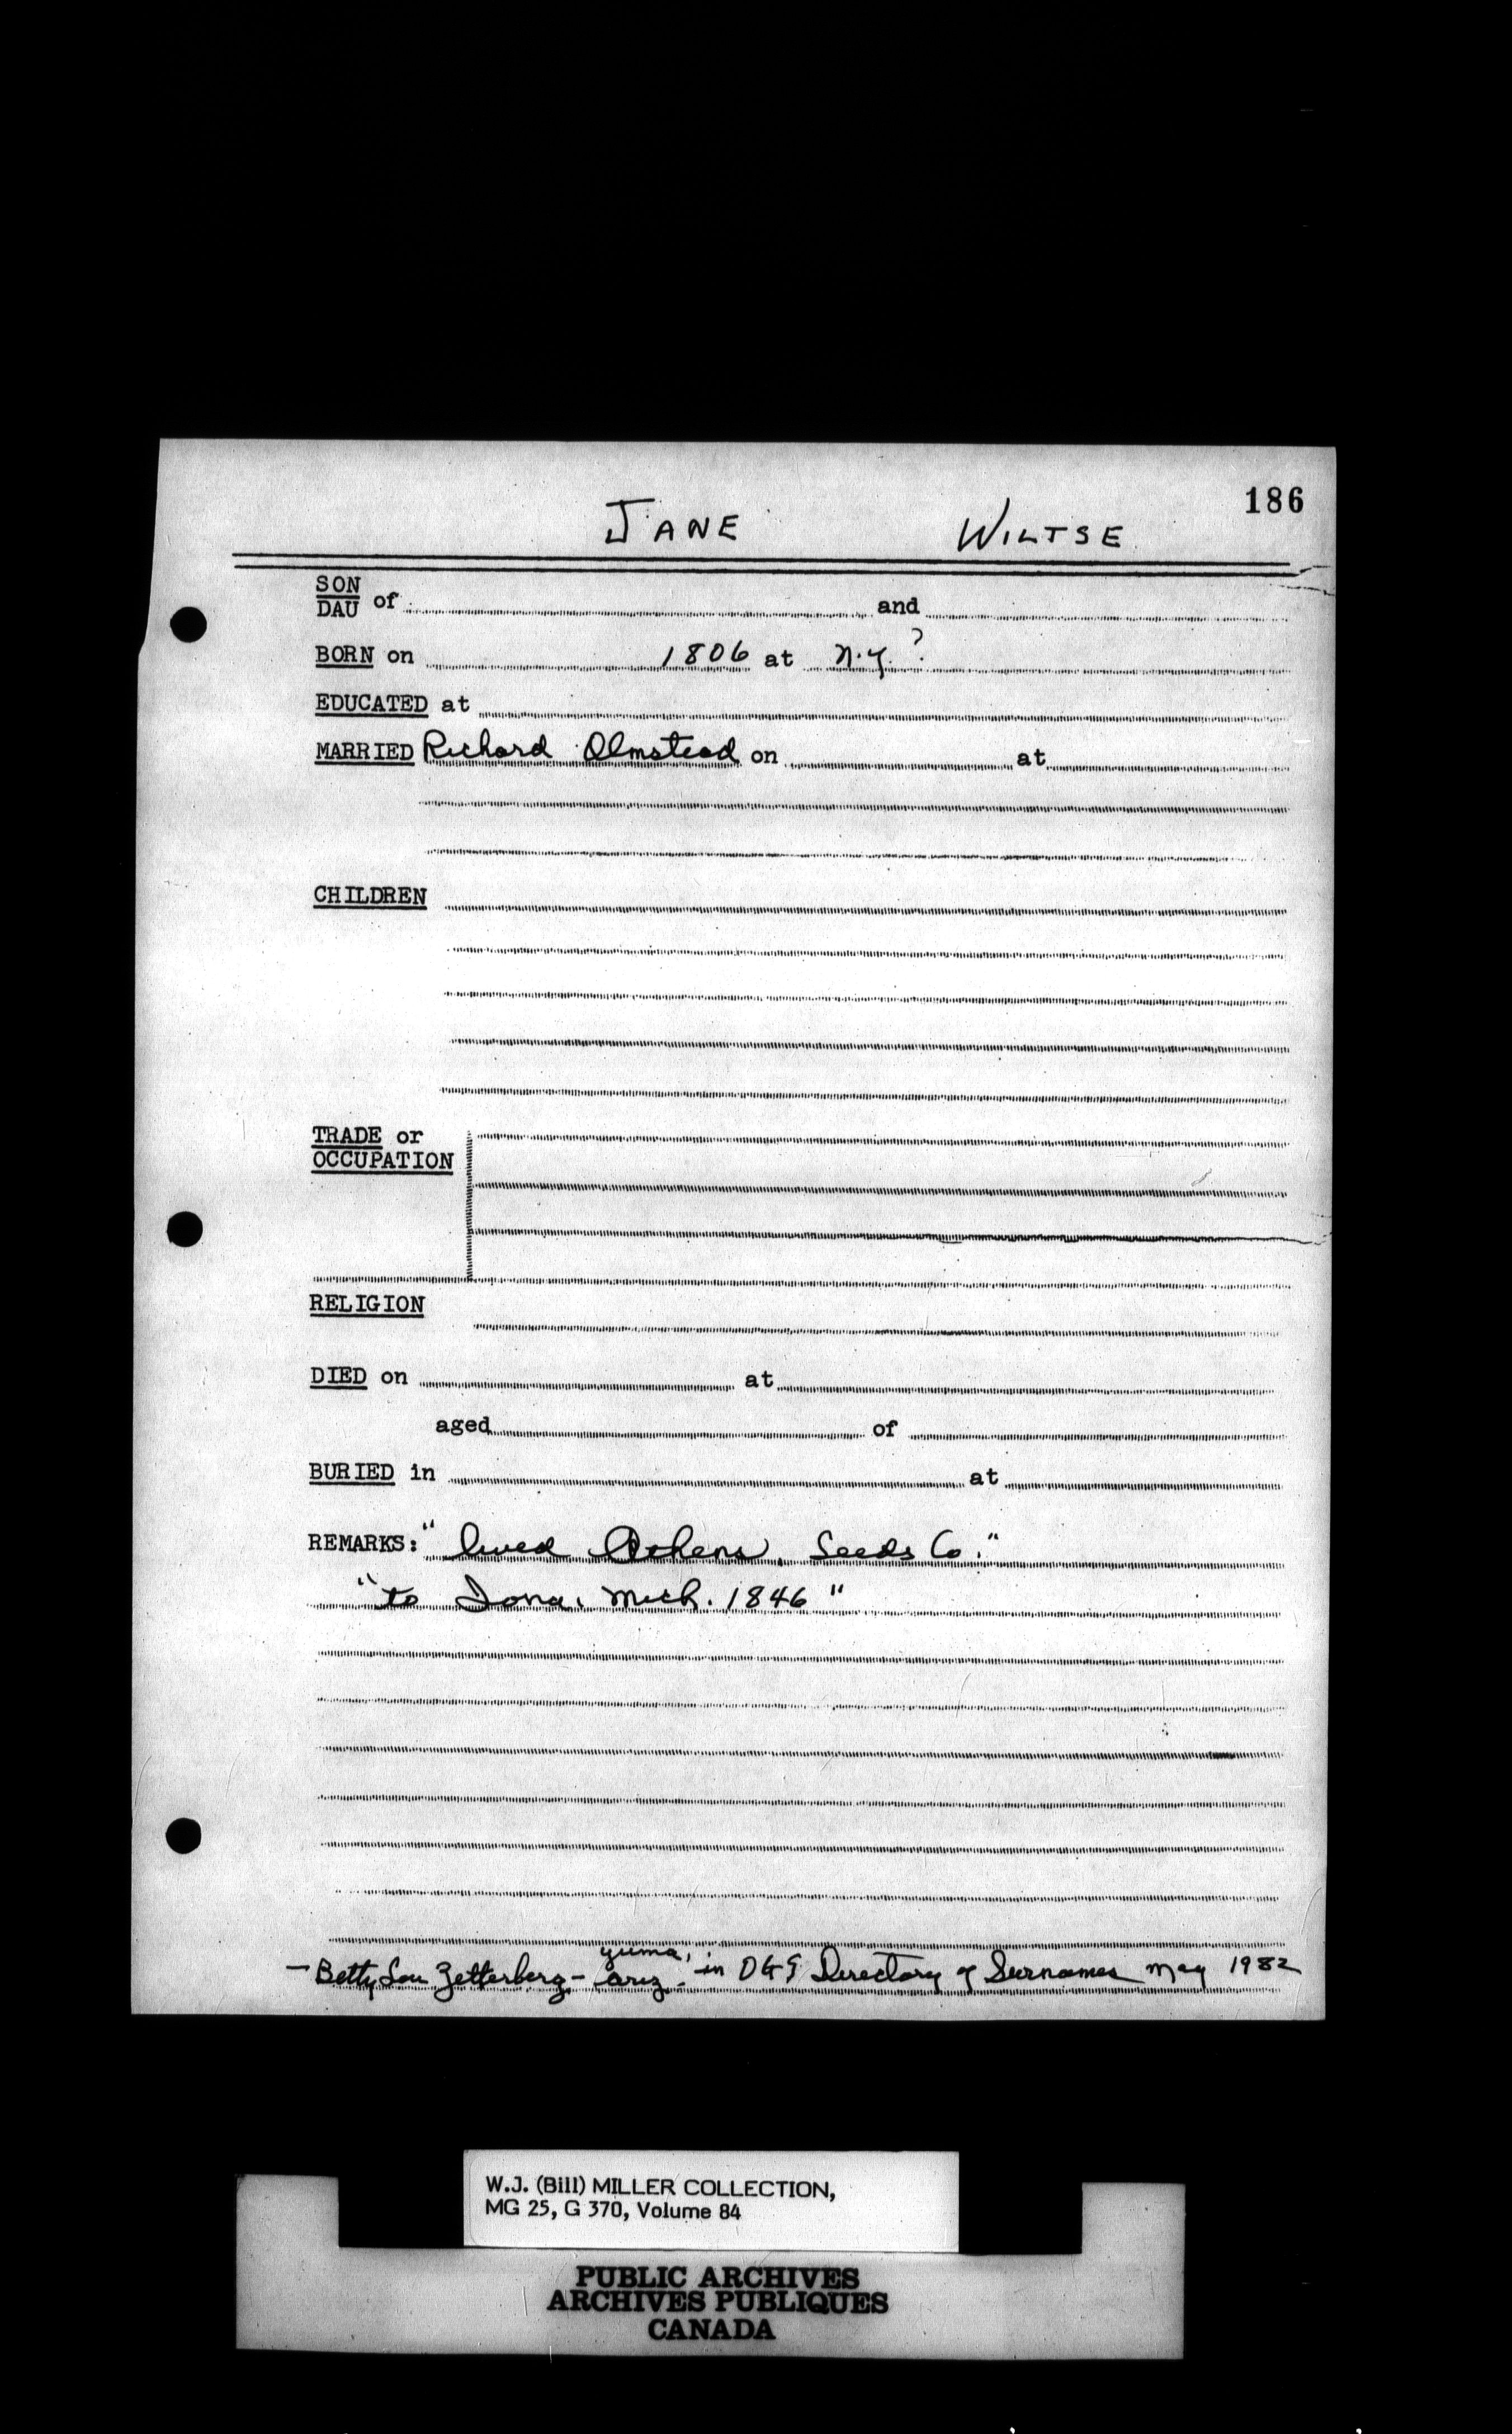 186
JANE WILTSE
SON
DAU of and
BORN on 1806 at N.Y. ?
EDUCATED at
MARRIED Richard Olmstead on at
CHILDREN
TRADE or
OCCUPATION
RELIGION
DIED on at
aged of
BURIED in at
REMARKS: "lived Athens, Leeds Co."
"to Iona, Mich. 1846"
Yuma,
- Betty Lou Zetterberg - Ariz. in OGS Directory of Surnames May 1982
W.J. (Bill) MILLER COLLECTION,
MG 25, G 370, Volume 84
PUBLIC ARCHIVES
ARCHIVES PUBLIQUES
CANADA